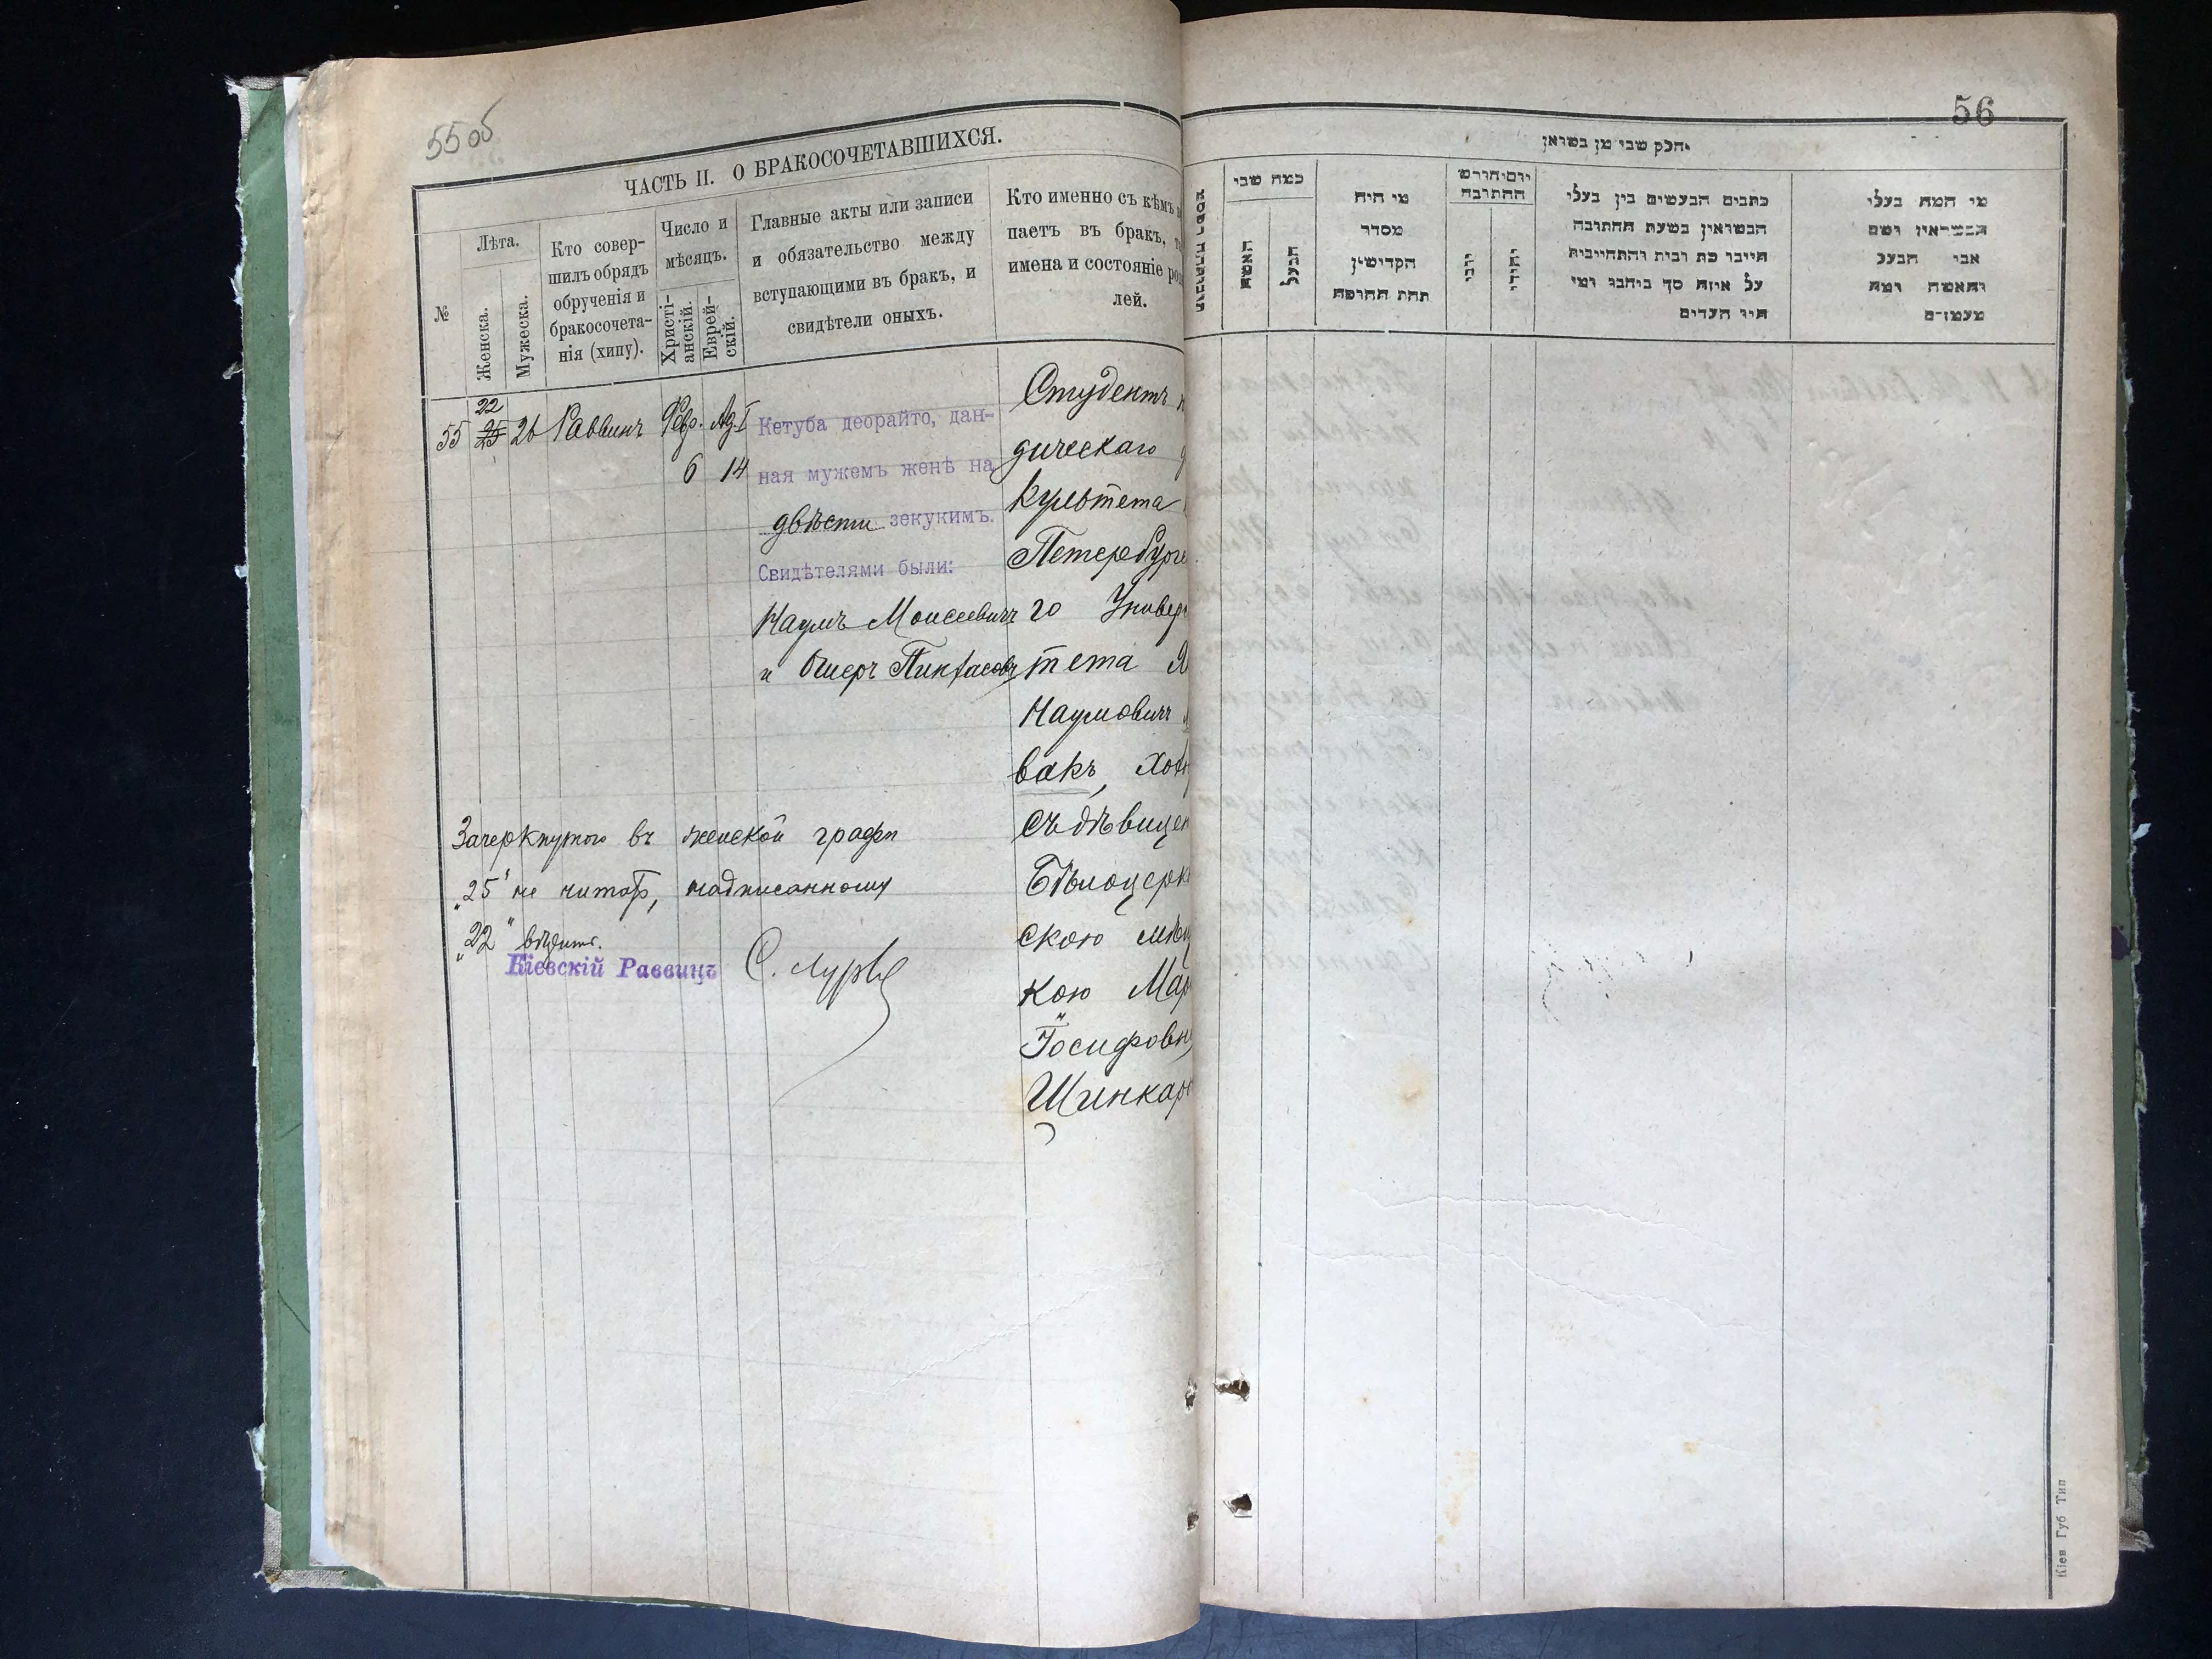 55 об
ЧАСТЬ II. О БРАКОСОЧЕТАВШИХСЯ.
№
Лѣта.
Женска.
Мужеска.
Кто совер-
шилъ обрядъ
обрученія и
бракосочета-
нія (хипу).
Число и
мѣсяцъ.
Христі-
анскій.
Еврей-
скій.
Главные акты или записи
и обязательство между
вступающими въ бракъ, и
свидѣтели оныхъ.
Кто именно съ кѣмъ
паетъ въ бракъ,
имена и состояніе
лей.
55
22
25
26
Раввинъ
Февр.
6
Ад. I
14
Кетуба деорайто, дан-
ная мужемъ женѣ на
двѣсти зекукимъ.
Свидѣтелями были:
Наумъ Моисеевичъ
и Ошеръ Пинхасовъ
Студентъ
дическаго
культета
Петербургс
го Универ
тета
Наумовичъ
вакъ, хол
съ дѣвицею
Бѣлоцерк
скою мѣщ
кою Мар
Іосифовн
Шинкар
Зачеркнутого въ женской графѣ
„25" не читать, надписанному
„22" вѣрить.
Кіевскій Раввинъ С. Лурье
56
חלק שני מן נשואין
כמה שני
האשה
הבעל
מי היה
מסדר
הקדישין
תחת החופה
יום וחודש
החתונה
יוני
יהודי
כתבים הנעשים בין בעלי
הנשואין בשעת החתונה
היינו כת ובית והתחייבות
על איזה סך ביחבו ומי
היו העדים
מי המה בעלי
הנשואין ושם
אבי הבעל
והאשה ומה
מעמדם
Кіев Губ Тип